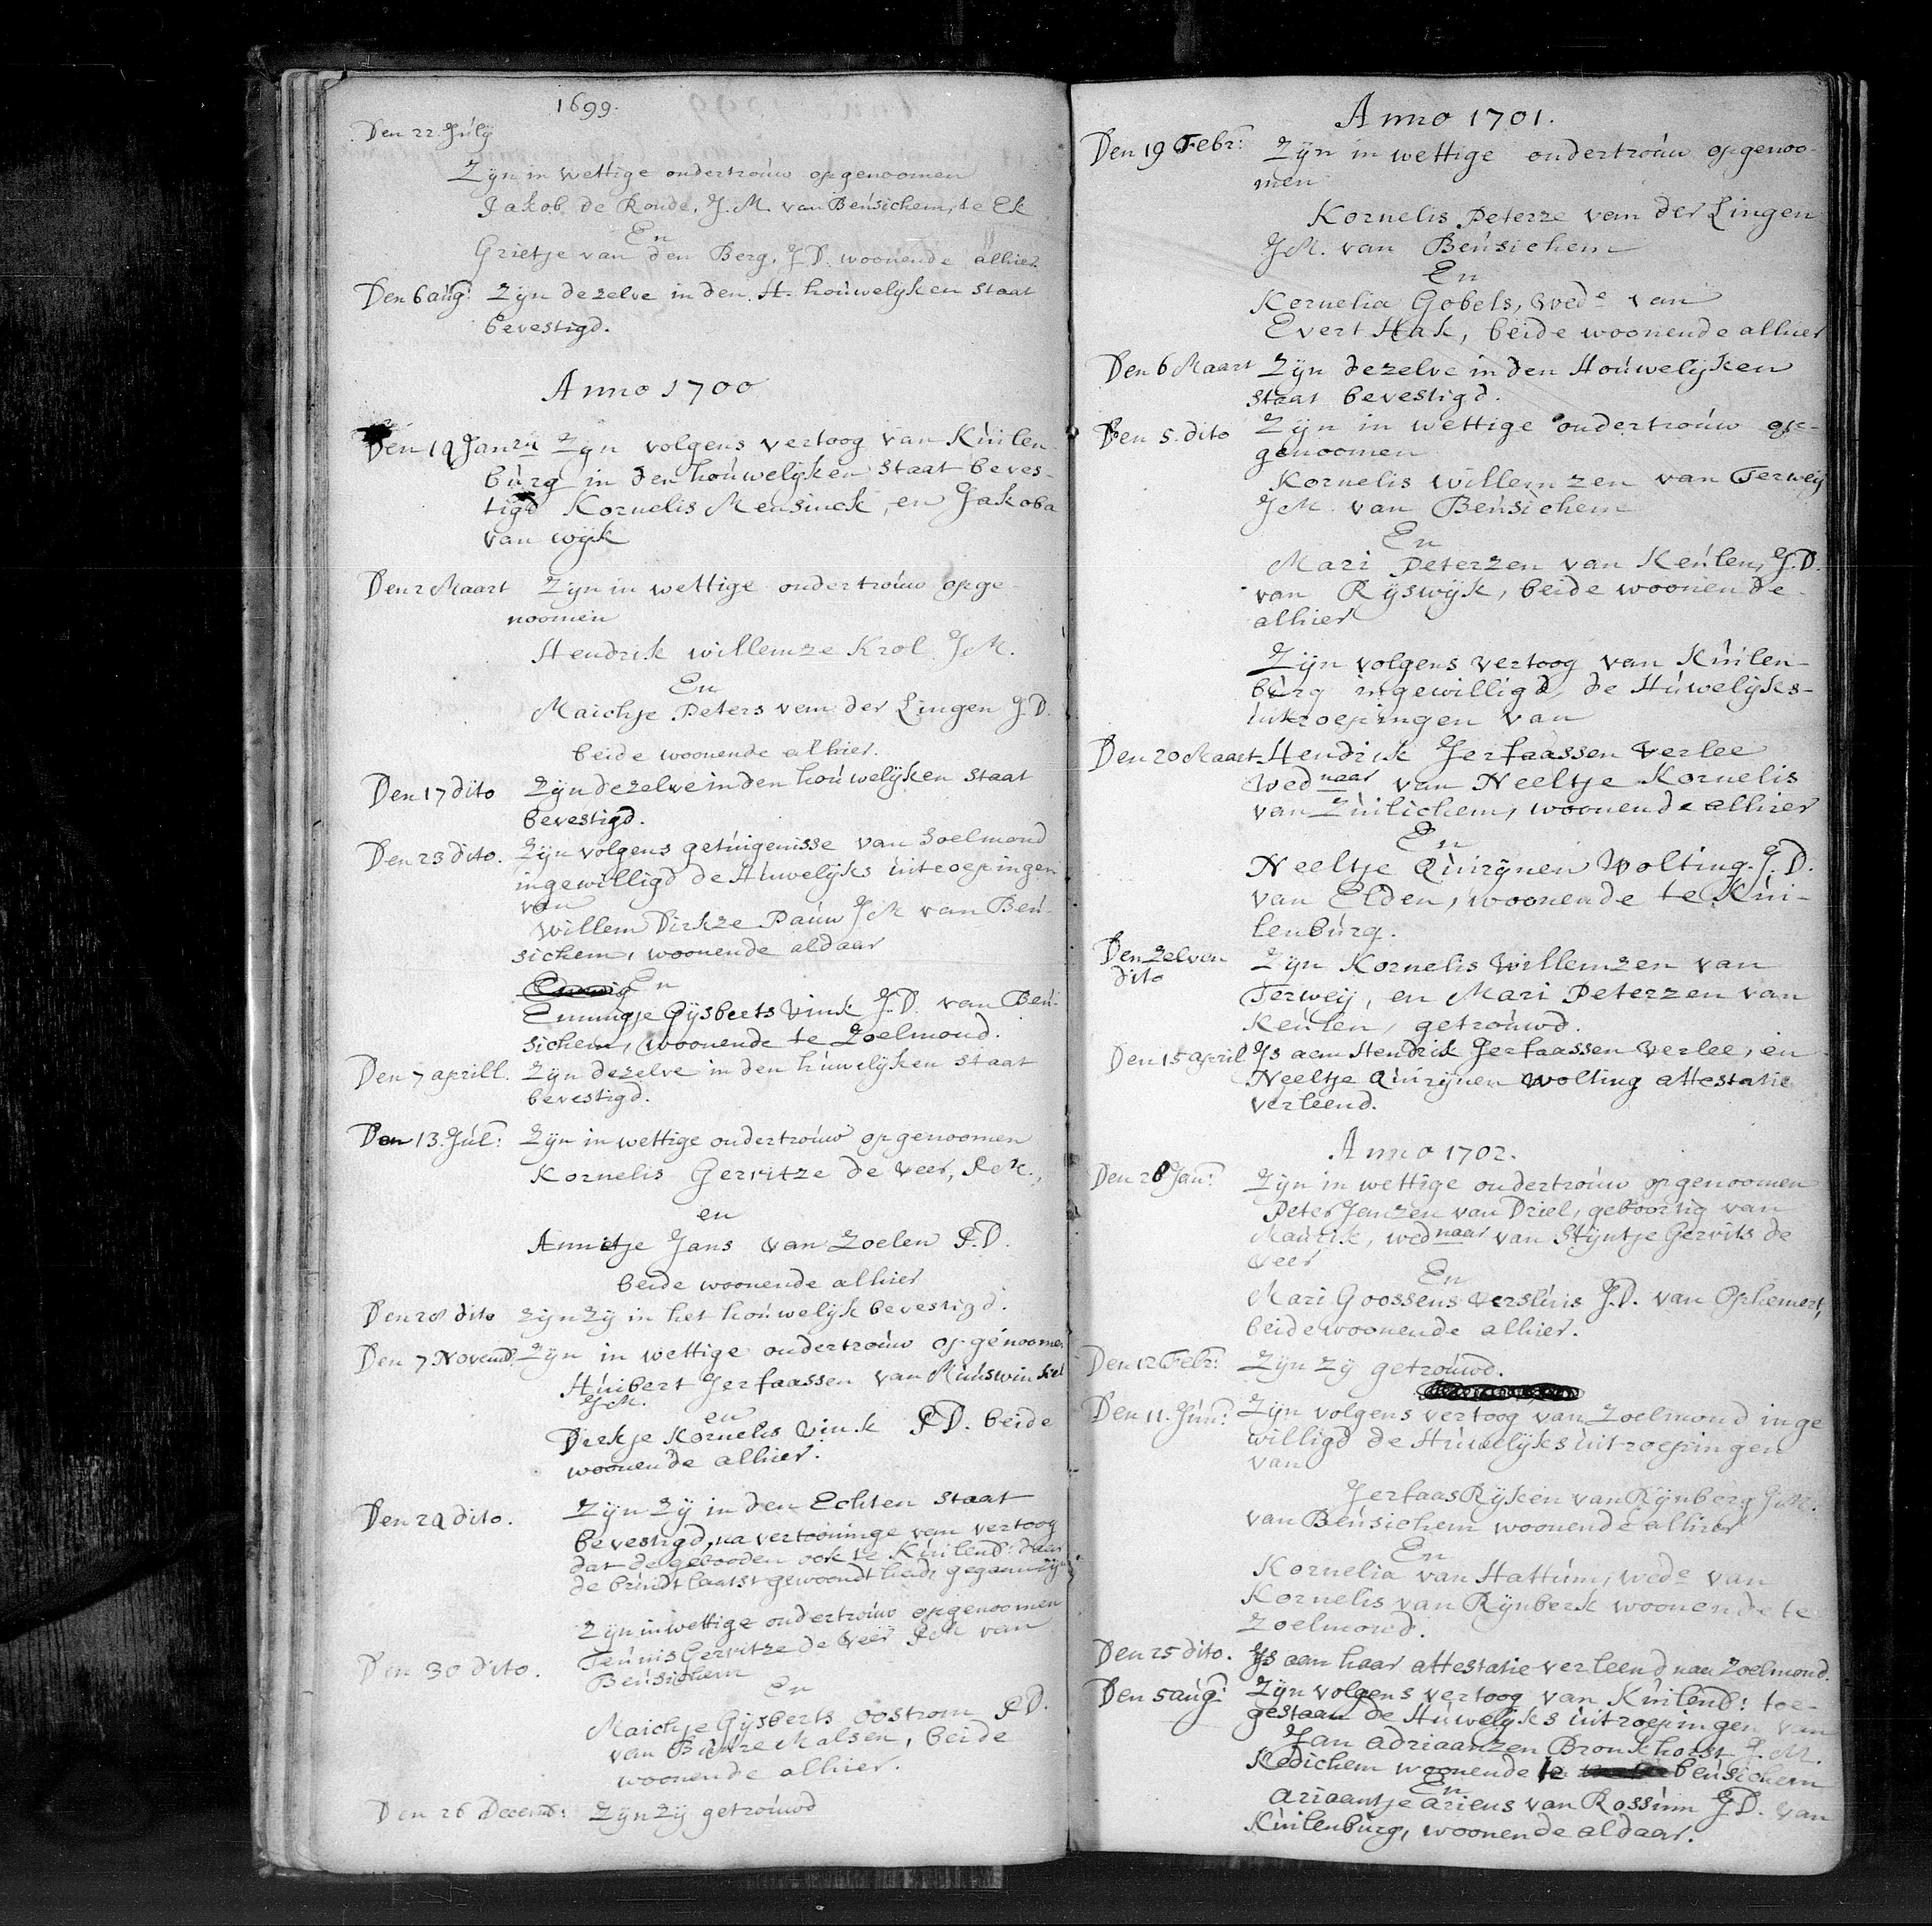 1699.
Den 22. Júlÿ
Zÿn in wettige ondertroúw opgenoomen
Jakob de Ronde, J.M. van Beúsichem, te Ek
En
Grietje van den Berg, J.D. woonende alhier.
Den 6 aúg: Zÿn dezelve in den H. hoúwelÿken staat
bevestigd.
Anno 1700
Den 19 Janru Zÿn volgens vertoog van Kúilen-
búrg in den hoúwelÿken staat beves-
tigd Kornelis Mensinck, en Jakoba
van wÿk
Den 2 Maart Zÿn in wettige ondertroúw opge-
noomen
Hendrik willemze Krol JM.
En
Maichje Peters van der Lingen J.D.
beide woonende alhier.
Den 17 dito Zÿn dezelve in den hoúwelÿken staat
bevestigd.
Den 23 dito. Zÿn volgens getúigenisse van Soelmond
ingewilligd de Húwelÿks úitroepingen
van
Willem Dirkze Paúw JM van Beú-
sichem, woonende aldaar
En
Emmigje Gÿsberts Vink J.D. van Beú-
sichem, woonende te Zoelmond.
Den 7 aprill. Zÿn dezelve in den húwelÿken staat
bevestigd.
Den 13. Júl: Zÿn in wettige ondertroúw opgenoomen
Kornelis Gerritze de Veer, JM.,
en
Annetje Jans van Zoelen J.D.
beide woonende alhier
Den 28 dito zÿn zÿ in het hoúwelÿk bevestigd.
Den 7 Novemb: Zÿn in wettige ondertroúw opgenoomen
Húibert Jerfaassen van Múiswinkel
JM.
en
Dirkje Kornelis Vink JD. beide
woonende alhier.
Den 29 dito. Zÿn Zÿ in den Echten staat
bevestigd, na vertooninge van vertoog
dat de gebooden ook te Kúilenb: daar
de brúidt laatst gewoondt hadt, gegaan zÿn
Zÿn in wettige ondertroúw opgenoomen
Den 30 dito. Teúnis Gerritze de Veer JM van
Beúsichem
En
Maichje Gÿsberts oostrom JD.
van Búúre Malsen, beide
woonende alhier.
Den 26 Decemb: Zÿn zÿ getroúwd
Anno 1701.
Den 19 Febr: Zÿn in wettige ondertroúw opgenoo-
men
Kornelis Peterze van der Lingen
JM. van Beúsichem
En
Kornelia Gobels, Wede van
Evert Hak, beide woonende alhier
Den 6 Maart Zÿn dezelve in den Hoúwelÿken
staat bevestigd.
Den 5. dito Zÿn in wettige ondertroúw op-
genoomen
Kornelis willemzen van Terweÿ
JM. van Beúsichem
En
Mari Peterzen van Keúlen, J.D.
van Rÿswÿk, beide woonende
alhier
Zÿn volgens vertoog van Kúilen-
búrg ingewilligd, de Húwelÿks-
úitroepingen van
Den 20 Maart Hendrik Jerfaassen Verlee
Wednaar van Neeltje Kornelis
van Zúilichem, woonende alhier
En
Neeltje Qúirÿnen Wolting. J.D.
van Elden, woonende te Kúi-
lenbúrg.
Den zelven
dito
Zÿn Kornelis Willemzen van
Terweÿ, en Mari Peterzen van
Keúlen, getroúwd.
Den 15 april Is aan Hendrik Jerfaassen Verlee, en
Neeltje Qúirÿnen Wolting attestatie
verleend.
Anno 1702.
Den 28 Jan: Zÿn in wettige ondertroúw opgenoomen
Peter Janzen van Driel, geboortig van
Maúrik, wednaar van Stÿntje Gerrits de
Veer
En
Mari Goossens Verslúis J.D. van Ophemert,
beide woonende alhier.
Den 12 Febr: Zÿn Zÿ getroúwd.
Den 11. Jún: Zÿn volgens vertoog van Zoelmond inge
willigd de Húwelÿks úitroepingen
van
Jerfaas Rÿken van Rÿnberg JM.
van Beúsichem woonende alhier
En
Kornelia van Hattúm, wede van
Kornelis van Rÿnberk woonende te
Zoelmond.
Den 25 dito. Is aan haar attestatie verleend naa Zoelmond.
Den 5 aúg: Zÿn volgens vertoog van Kúilenb: toe-
gestaan de Húwelÿks úitroepingen van
Jan adriaanzen Bronkhorst J.M.
Kedichem woonende te beúsichem
En
Ariaantje ariens van Rossúm J.D. van
Kúilenbúrg, woonende aldaar.